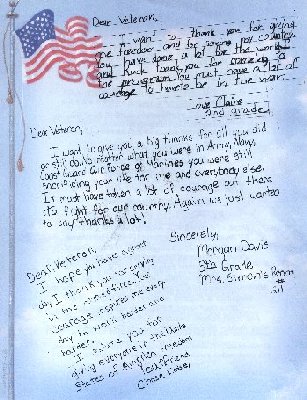 Dear Veteran,
I want to thank you for giving
me freedom and for serving our country.
You have done a lot for the world
and thank you for
You must have a lot of
courage to have be in the war.
Love, Claire
2nd grade
Dear Veteran,
I want to give you a big thanks for all you did
or still do. No matter what you were in Army, Navy,
Coast Guard Air Force or Marines you were still
sacrificing your life for me and everybody else.
It must have taken a lot of courage out there
to fight for our country. Again we just wanted
to say thanks a lot!
Sincerely,
Morgan Davis
5th Grade
Mrs. Simon's Room
Dear Veteran,
I hope you have a great
day. I thank you for
in the Your
courage inspires me every
day to work harder and
harder. I you for
giving everyone in the United
States of America freedom
Your friend,